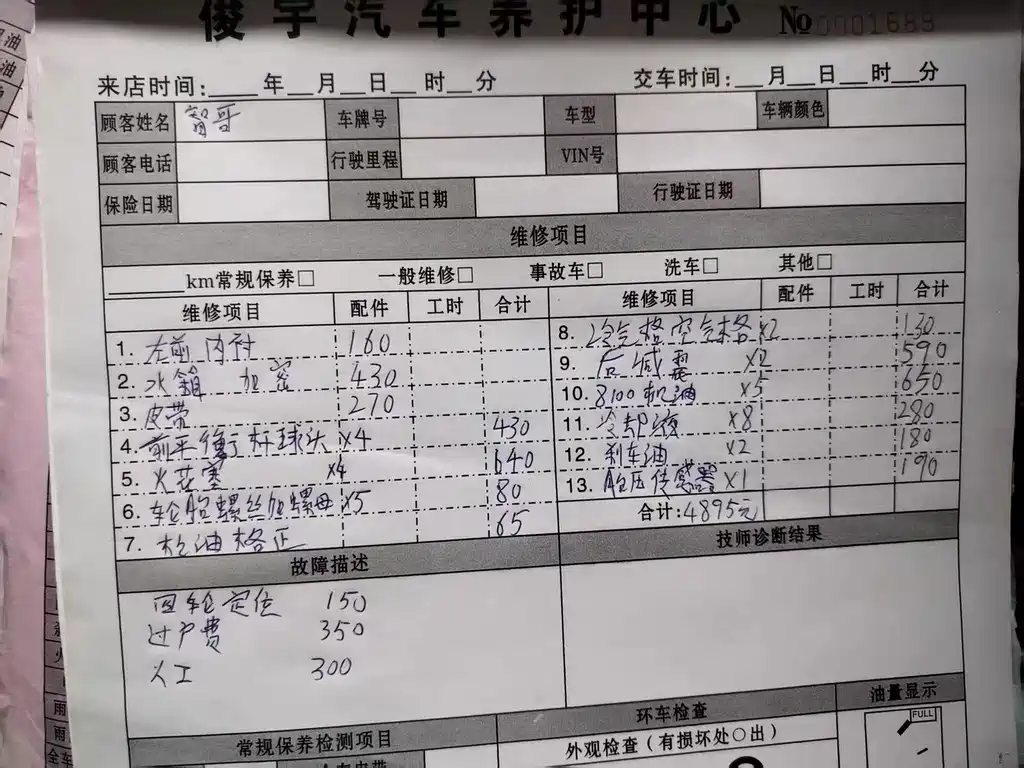 俊宇汽车养护中心 № 0001689
来店时间:____年__月__日__时__分 交车时间:__月__日__时__分
顾客姓名 智哥 车牌号 车型 车辆颜色
顾客电话 行驶里程 VIN号
保险日期 驾驶证日期 行驶证日期
维修项目
____km常规保养□ 一般维修□ 事故车□ 洗车□ 其他□
维修项目 配件 工时 合计 维修项目 配件 工时 合计
1. 左前内衬 160
2. 水箱 加宽 430
3. 皮带 270
4. 前平衡杆球头 x4 430
5. 火花塞 x4 640
6. 轮胎螺丝加螺母 x5 80
7. 机油格正 65
8. 冷气格空气格 x2 130
9. 后减震 x2 590
10. 8100机油 x5 650
11. 冷却液 x8 280
12. 刹车油 x2 180
13. 胎压传感器 x1 190
合计:4895元
故障描述 技师诊断结果
四轮定位 150
过户费 350
人工 300
环车检查 油量显示
常规保养检测项目 外观检查(有损坏处○出) FULL